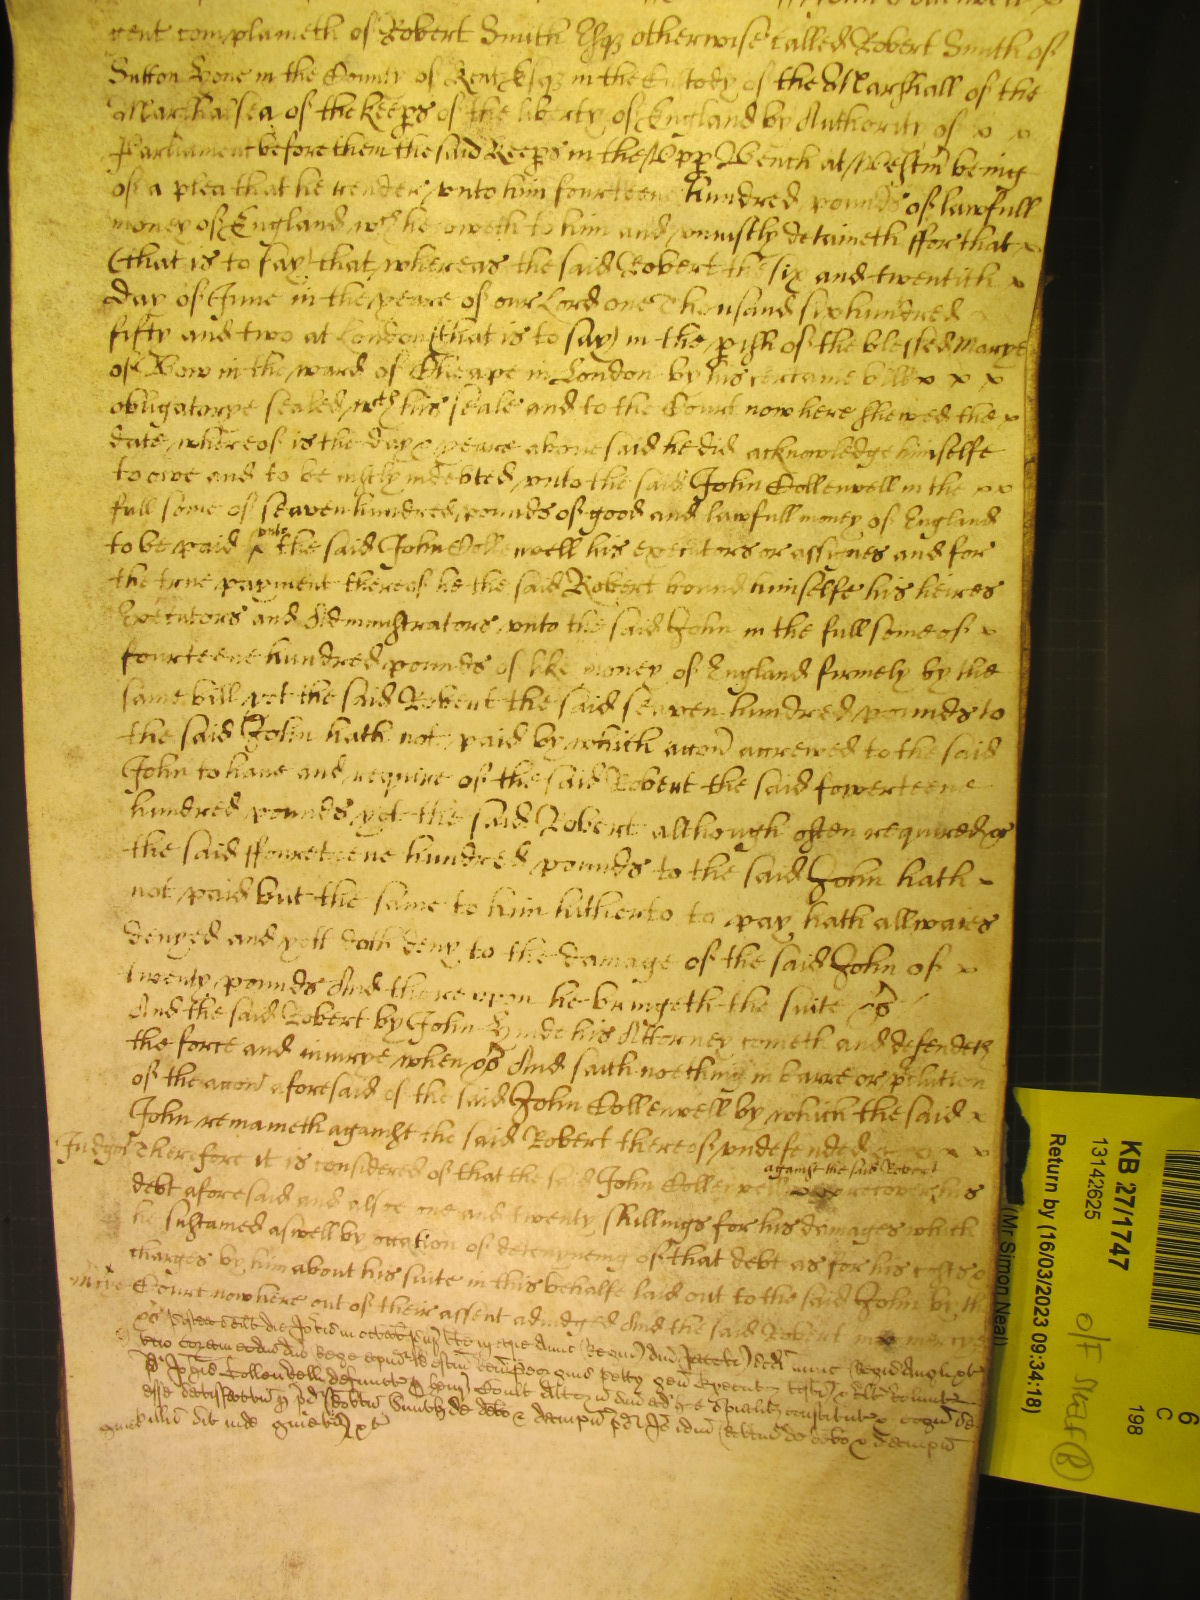 gent complaineth of Robert Smith Esq otherwise called Robert Smith of
Sutton Hone in the County of Kent Esq in the Custody of the Marshall of the
Marshalsea of the Keeps of the liberty of England by Authority of x x
Parliament before them the said Keeps in the Upp Bench at Westm being
of a plea that he render vnto him fourteene hundred pounds of lawfull
money of England wch he oweth to him and vniustly detaineth ffor that x
(that is to say) that whereas the said Robert the six and twentith x
day of June in the yeare of our Lord one Thousand six hundred
fifty and two at London (that is to say) in the pish of the blessed Marye
of Bow in the ward of Cheape in London by his certaine bill x x x
obligatorye sealed wth his seale and to the Court now here shewed the x
date whereof is the day & yeare abouesaid he did acknowledge himselfe
to owe and to be iustly indebted vnto the said John Collenwell in the x x
full some of seaven hundred pounds of good and lawfull money of England
to be paid vnto the said John Collenwell his executors or assignes and for
the true payment thereof he the said Robert bound himselfe his heires
Executors and Administrators vnto the said John in the full some of x
fourteene hundred pounds of like money of England firmely by the
same bill yet the said Robert the said seaven hundred pounds to
the said John hath not paid by which accon accrewed to the said
John to haue and require of the said Robert the said fowerteene
hundred pounds yet the said Robert although often required &c
the said ffoureteene hundred pounds to the said John hath x
not paid but the same to him hitherto to pay hath allwaies
denyed and yett doth deny to the damage of the said John of x
twenty pounds And thereupon he bringeth the suite &c
And the said Robert by John Hunde his Attorney cometh and defendeth
the force and iniurye when &c And saith nothing in barre or pclution
of the accon aforesaid of the said John Collenwell by which the said x
John remaineth against the said Robert thereof vndefended x x x x
Judgt Therefore it is considered of that the said John Collenwell against the said Robert recover his
debt aforesaid and alsoe one and twenty shillings for his damages which
he sustained aswell by occation of deteyneing of that debt as for his costs &
charges by him about his suite in this behalfe laid out to the said John by the
Court now here out of their assent adiudged And the said Robert in mercye
KB 27/1747
13142625
Return by (16/03/2023 09:34:18)
(Mr Simon Neal)
6
C
198
O/F